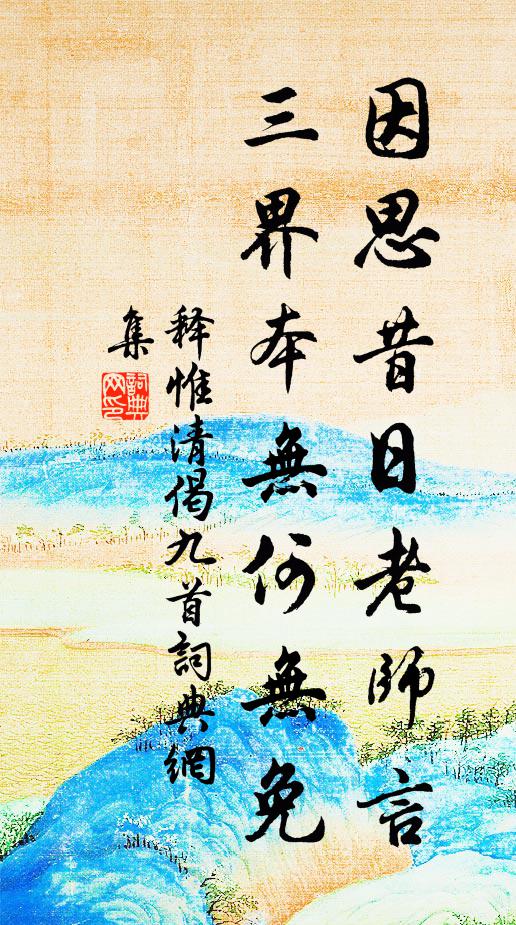 因思昔日老師言
三界本無何無免
释惟清偈九首詞典網
集
詞典網印